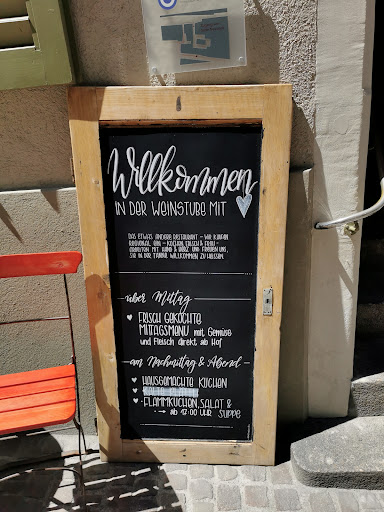 Willkommen
IN DER WEINSTUBE MIT
DAS ETWAS ANDERE RESTAURANT - WIR KAUFEN
REGIONAL EIN - KOCHEN FRISCH &
ARBEITEN MIT HAND & HERZ UND FREUEN UNS,
SIE IN DER TANNE WILLKOMMEN ZU HEISSEN.
über Mittag
FRISCH GEKOCHTE
MITTAGSMENÜ mit Gemüse
und Fleisch direkt ab Hof
am Nachmittag & Abend
HAUSGEMACHTE KUCHEN
FLAMMKUCHEN, SALAT &
→ ab 17:00 UHR SUPPE